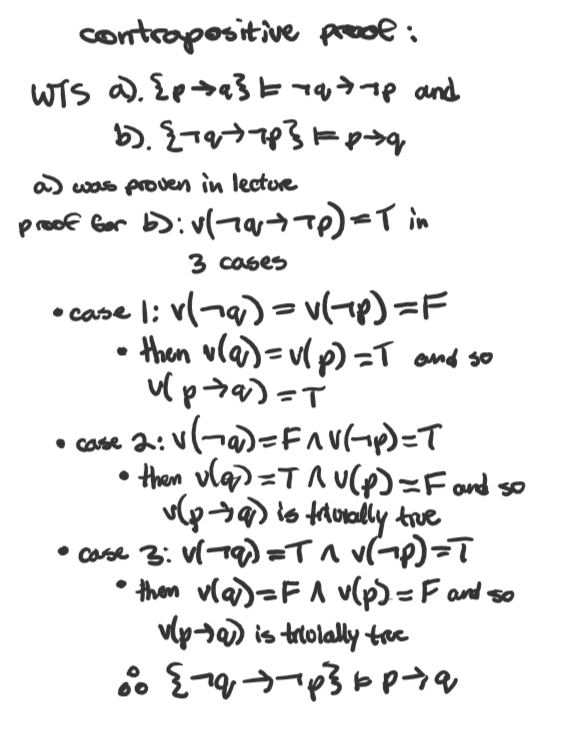 contrapositive proof:
WTS a). {p→q} ⊨ ¬q→¬p and
b). {¬q→¬p} ⊨ p→q
a) was proven in lecture
proof for b): v(¬q→¬p)=T in
3 cases
• case 1: v(¬q)=v(¬p)=F
• then v(q)=v(p)=T and so
v(p→q)=T
• case 2: v(¬q)=F∧v(¬p)=T
• then v(q)=T∧v(p)=F and so
v(p→q) is trivially true
• case 3: v(¬q)=T∧v(¬p)=T
• then v(q)=F∧v(p)=F and so
v(p→q) is trivially true
∴ {¬q→¬p} ⊨ p→q